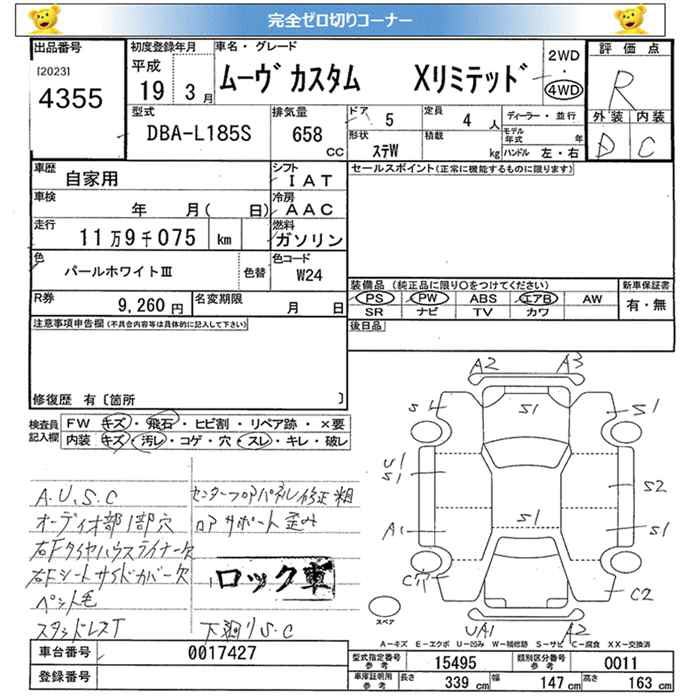 完全ゼロ切りコーナー
出品番号 初度登録年月 車名・グレード 評価点
[2023] 4355
平成 19 3月
ムーヴカスタム Xリミテッド
2WD・4WD
R
型式 DBA-L185S
排気量 658 CC
ドア 5
定員 4 人
形状 ステW
積載 kg
ディーラー・並行
モデル年式 年
ハンドル 左・右
外装 内装
D C
車歴 自家用
シフト IAT
セールスポイント(正常に機能するものに限ります)
車検 年 月( 日)
冷房 AAC
走行 11万9千075 km
燃料 ガソリン
色 パールホワイトⅢ 色替
色コード W24
装備品(純正品に限り○をつけてください)
新車保証書
PS PW ABS エアB AW
有・無
R券 9,260円
名変期限 月 日
SR ナビ TV カワ
注意事項申告欄(不具合内容等は具体的に記入して下さい)
後日品
修復歴 有〔箇所 〕
検査員記入欄
FW キズ・飛石・ヒビ割・リペア跡・×要
内装 キズ・汚レ・コゲ・穴・スレ・キレ・破レ
A2 A3
S1 S1 S1
U1 S1 S2
A1 S1 S1
C穴 C2
UA1 A2
スペア
A.U.S.C
センターフロアパネル修正粗
オーディオ部1部穴
ロアサポート歪み
右Fタイヤハウスライナー欠
右Fシートサイドカバー欠
ロック車
ペット毛
スタッドレスT
下廻りS.C
A-キズ E-エクボ U-凹み W-補修跡 S-サビ C-腐食 XX-交換済
車台番号 0017427
型式指定番号 参考 15495
類別区分番号 参考 0011
登録番号
車庫証明用 参考 長さ 339 cm 幅 147 cm 高さ 163 cm